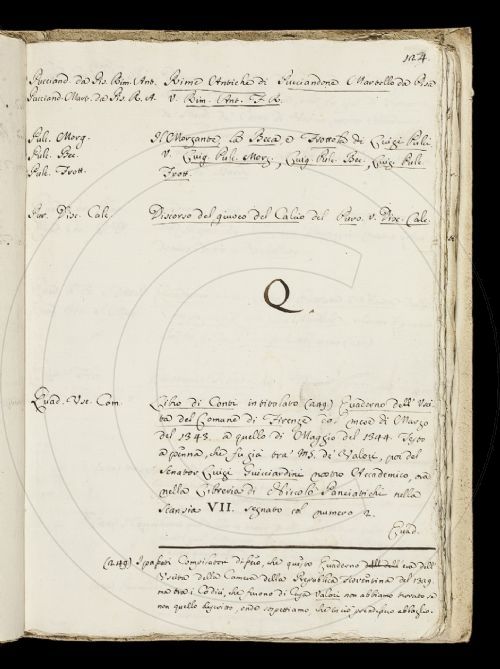 124.
Pucciand. da Pis. Rim. Ant. Rime Antiche di Pucciandone Martello da Pisa
Pucciand. Mart. da Pis. R. A. v. Rim. Ant. F. R.
Pulc. Morg. Il Morgante, la Beca e Frottola di Luigi Pulci
Pulc. Bec. v. Luig. Pulc. Morg., Luig. Pulc. Bec., Luigi Pulc.
Pulc. Frott. Frott.
Pur. Disc. Calc. Discorso del giuoco del Calcio del Puro. v. Disc. Calc.
Q.
Quad. Usc. Com. Libro di Conti intitolato (249) Quaderno dell' Usci-
ta del Comune di Firenze mese di Marzo
del 1343. a quello di Maggio del 1344. Testo
a penna, che fu già tra' MS. de' Valori, poi del
Senator Luigi Guicciardini nostro Accademico, ora
nella Libreria di Niccolò Panciatichi nella
Scansia VII. segnato col numero 2.
Quad.
(249) I passati Compilatori che questo Quaderno dell'
Uscita della Camera della Repubblica Fiorentina del 1339.
ma tra i Codici, che furono di Casa Valori non abbiamo trovato se
non quello onde che in ciò prendessero abbaglio.